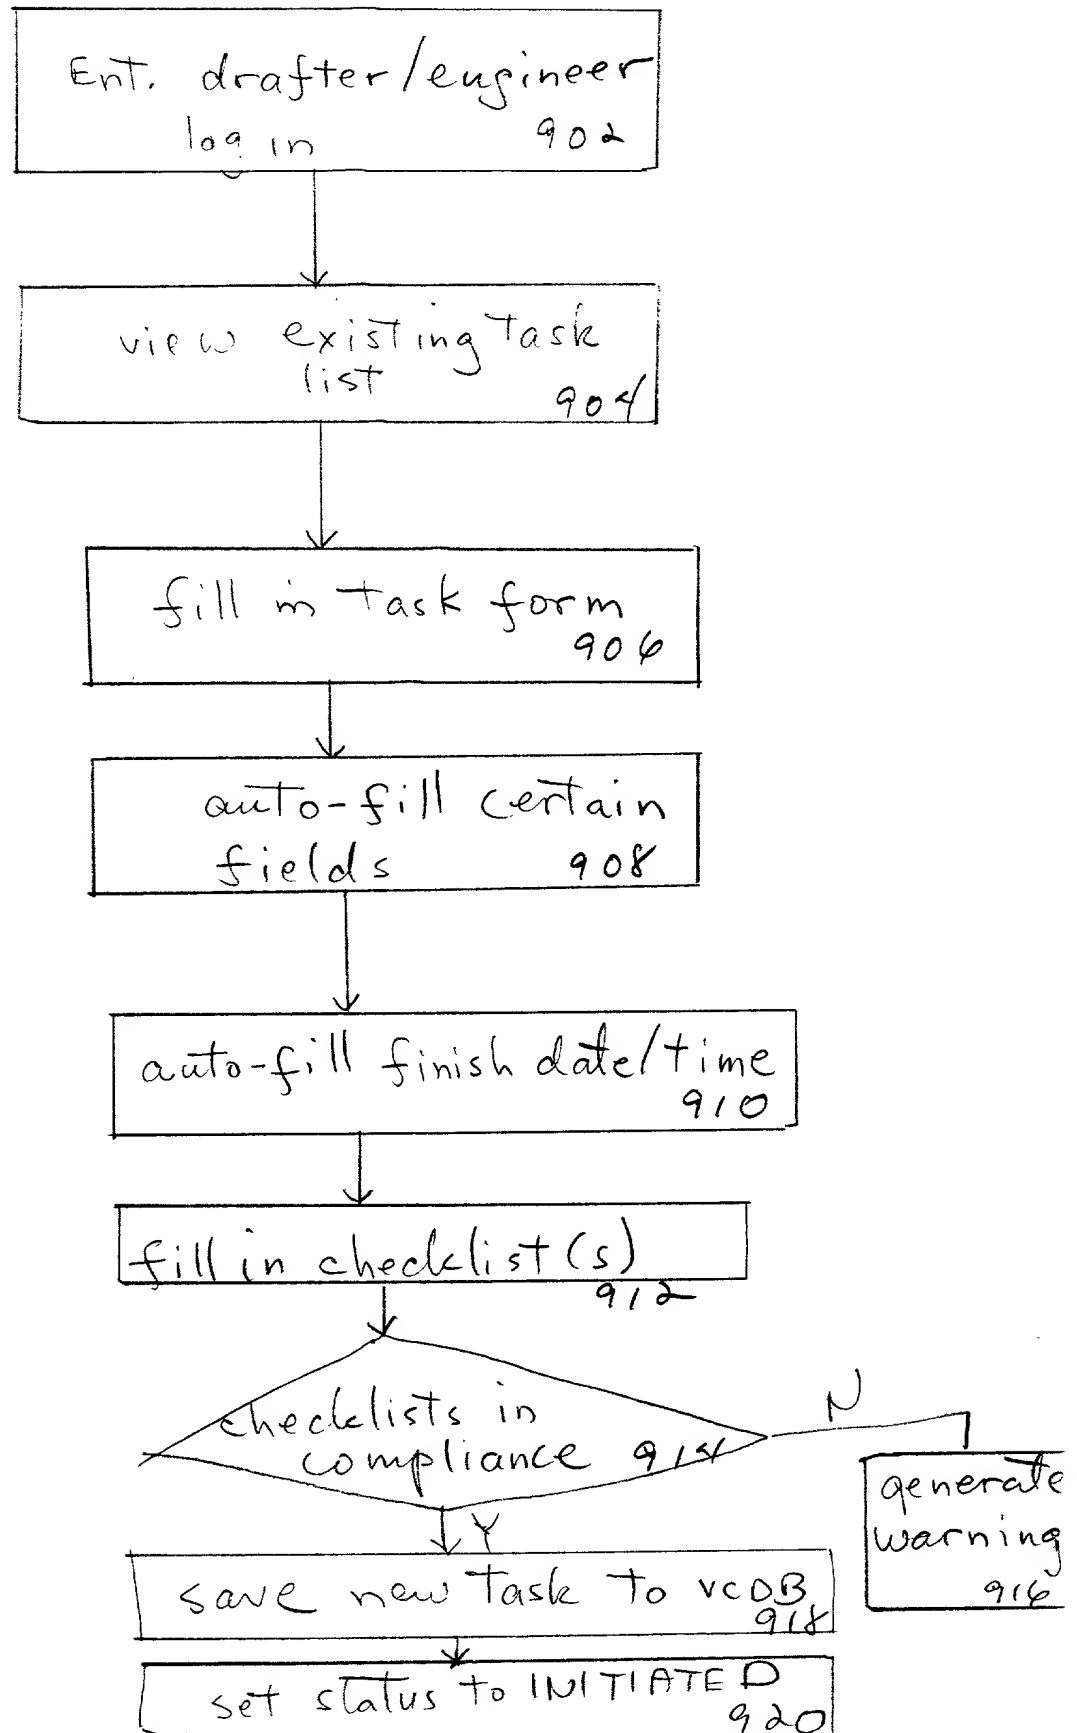 Ent. drafter/engineer
log in 902
view existing task
list
904
fill in task form
906
auto-fill certain
fields 908
auto-fill finish date/time
910
fill in checklist(s)
912
checklists in
compliance 914
N
generate
warning
916
Y
save new task to VCDB
918
set status to INITIATED
920